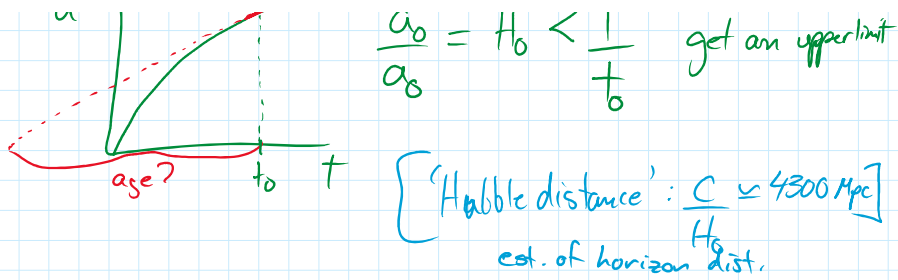 a
ȧ₀/a₀ = H₀ < 1/t₀ get an upper limit
age?
t₀ t
['Hubble distance' : c/H₀ ≃ 4300 Mpc]
est. of horizon dist.